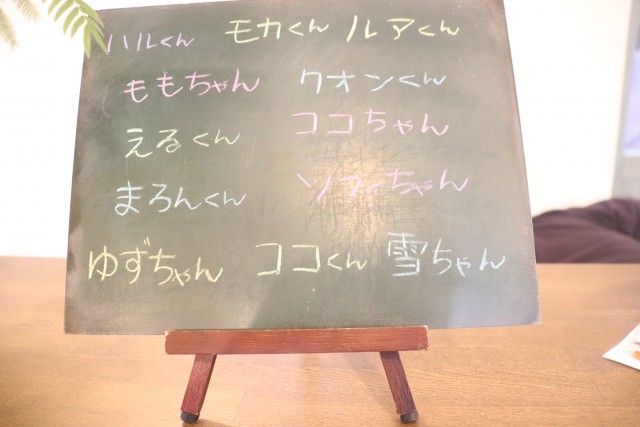 ハルくん モカくん ルアくん
ももちゃん クオンくん
えるくん ココちゃん
まろんくん ソフィちゃん
ゆずちゃん ココくん 雪ちゃん